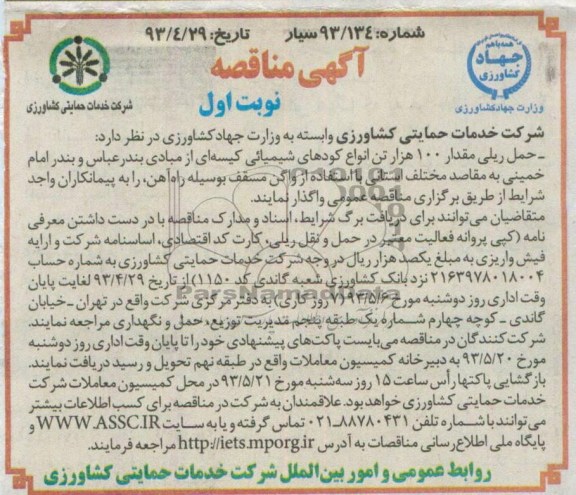 شماره: ۹۳/۱۳۴ سیار تاریخ: ۹۳/۴/۲۹
همه با هم
جهاد
کشاورزی
وزارت جهادکشاورزی
آگهی مناقصه
نوبت اول
شرکت خدمات حمایتی کشاورزی
شرکت خدمات حمایتی کشاورزی وابسته به وزارت جهادکشاورزی در نظر دارد:
ـ حمل ریلی مقدار ۱۰۰ هزار تن انواع کودهای شیمیائی کیسه‌ای از مبادی بندرعباس و بندر امام
خمینی به مقاصد مختلف استانی با استفاده از واگن مسقف بوسیله راه‌آهن، را به پیمانکاران واجد
شرایط از طریق برگزاری مناقصه عمومی واگذار نمایند.
متقاضیان می‌توانند برای دریافت برگ شرایط، اسناد و مدارک مناقصه با در دست داشتن معرفی
نامه (کپی پروانه فعالیت معتبر در حمل و نقل ریلی، کارت کد اقتصادی، اساسنامه شرکت و ارایه
فیش واریزی به مبلغ یکصد هزار ریال در وجه شرکت خدمات حمایتی کشاورزی به شماره حساب
۲۱۶۳۹۷۸۰۱۸۰۰۴ نزد بانک کشاورزی شعبه گاندی کد ۱۱۵۰) از تاریخ ۹۳/۴/۲۹ لغایت پایان
وقت اداری روز دوشنبه مورخ ۹۳/۵/۶ (۷ روز کاری) به دفتر مرکزی شرکت واقع در تهران ـ خیابان
گاندی ـ کوچه چهارم شماره یک طبقه پنجم مدیریت توزیع، حمل و نگهداری مراجعه نمایند.
شرکت کنندگان در مناقصه می‌بایست پاکت‌های پیشنهادی خود را تا پایان وقت اداری روز دوشنبه
مورخ ۹۳/۵/۲۰ به دبیرخانه کمیسیون معاملات واقع در طبقه نهم تحویل و رسید دریافت نمایند.
بازگشایی پاکتها رأس ساعت ۱۵ روز سه‌شنبه مورخ ۹۳/۵/۲۱ در محل کمیسیون معاملات شرکت
خدمات حمایتی کشاورزی خواهد بود. علاقمندان به شرکت در مناقصه برای کسب اطلاعات بیشتر
می‌توانند با شماره تلفن ۸۸۷۸۰۴۳۱-۰۲۱ تماس گرفته و یا به سایت WWW.ASSC.IR و
پایگاه ملی اطلاع‌رسانی مناقصات به آدرس http://iets.mporg.ir مراجعه فرمایند.
روابط عمومی و امور بین‌الملل شرکت خدمات حمایتی کشاورزی